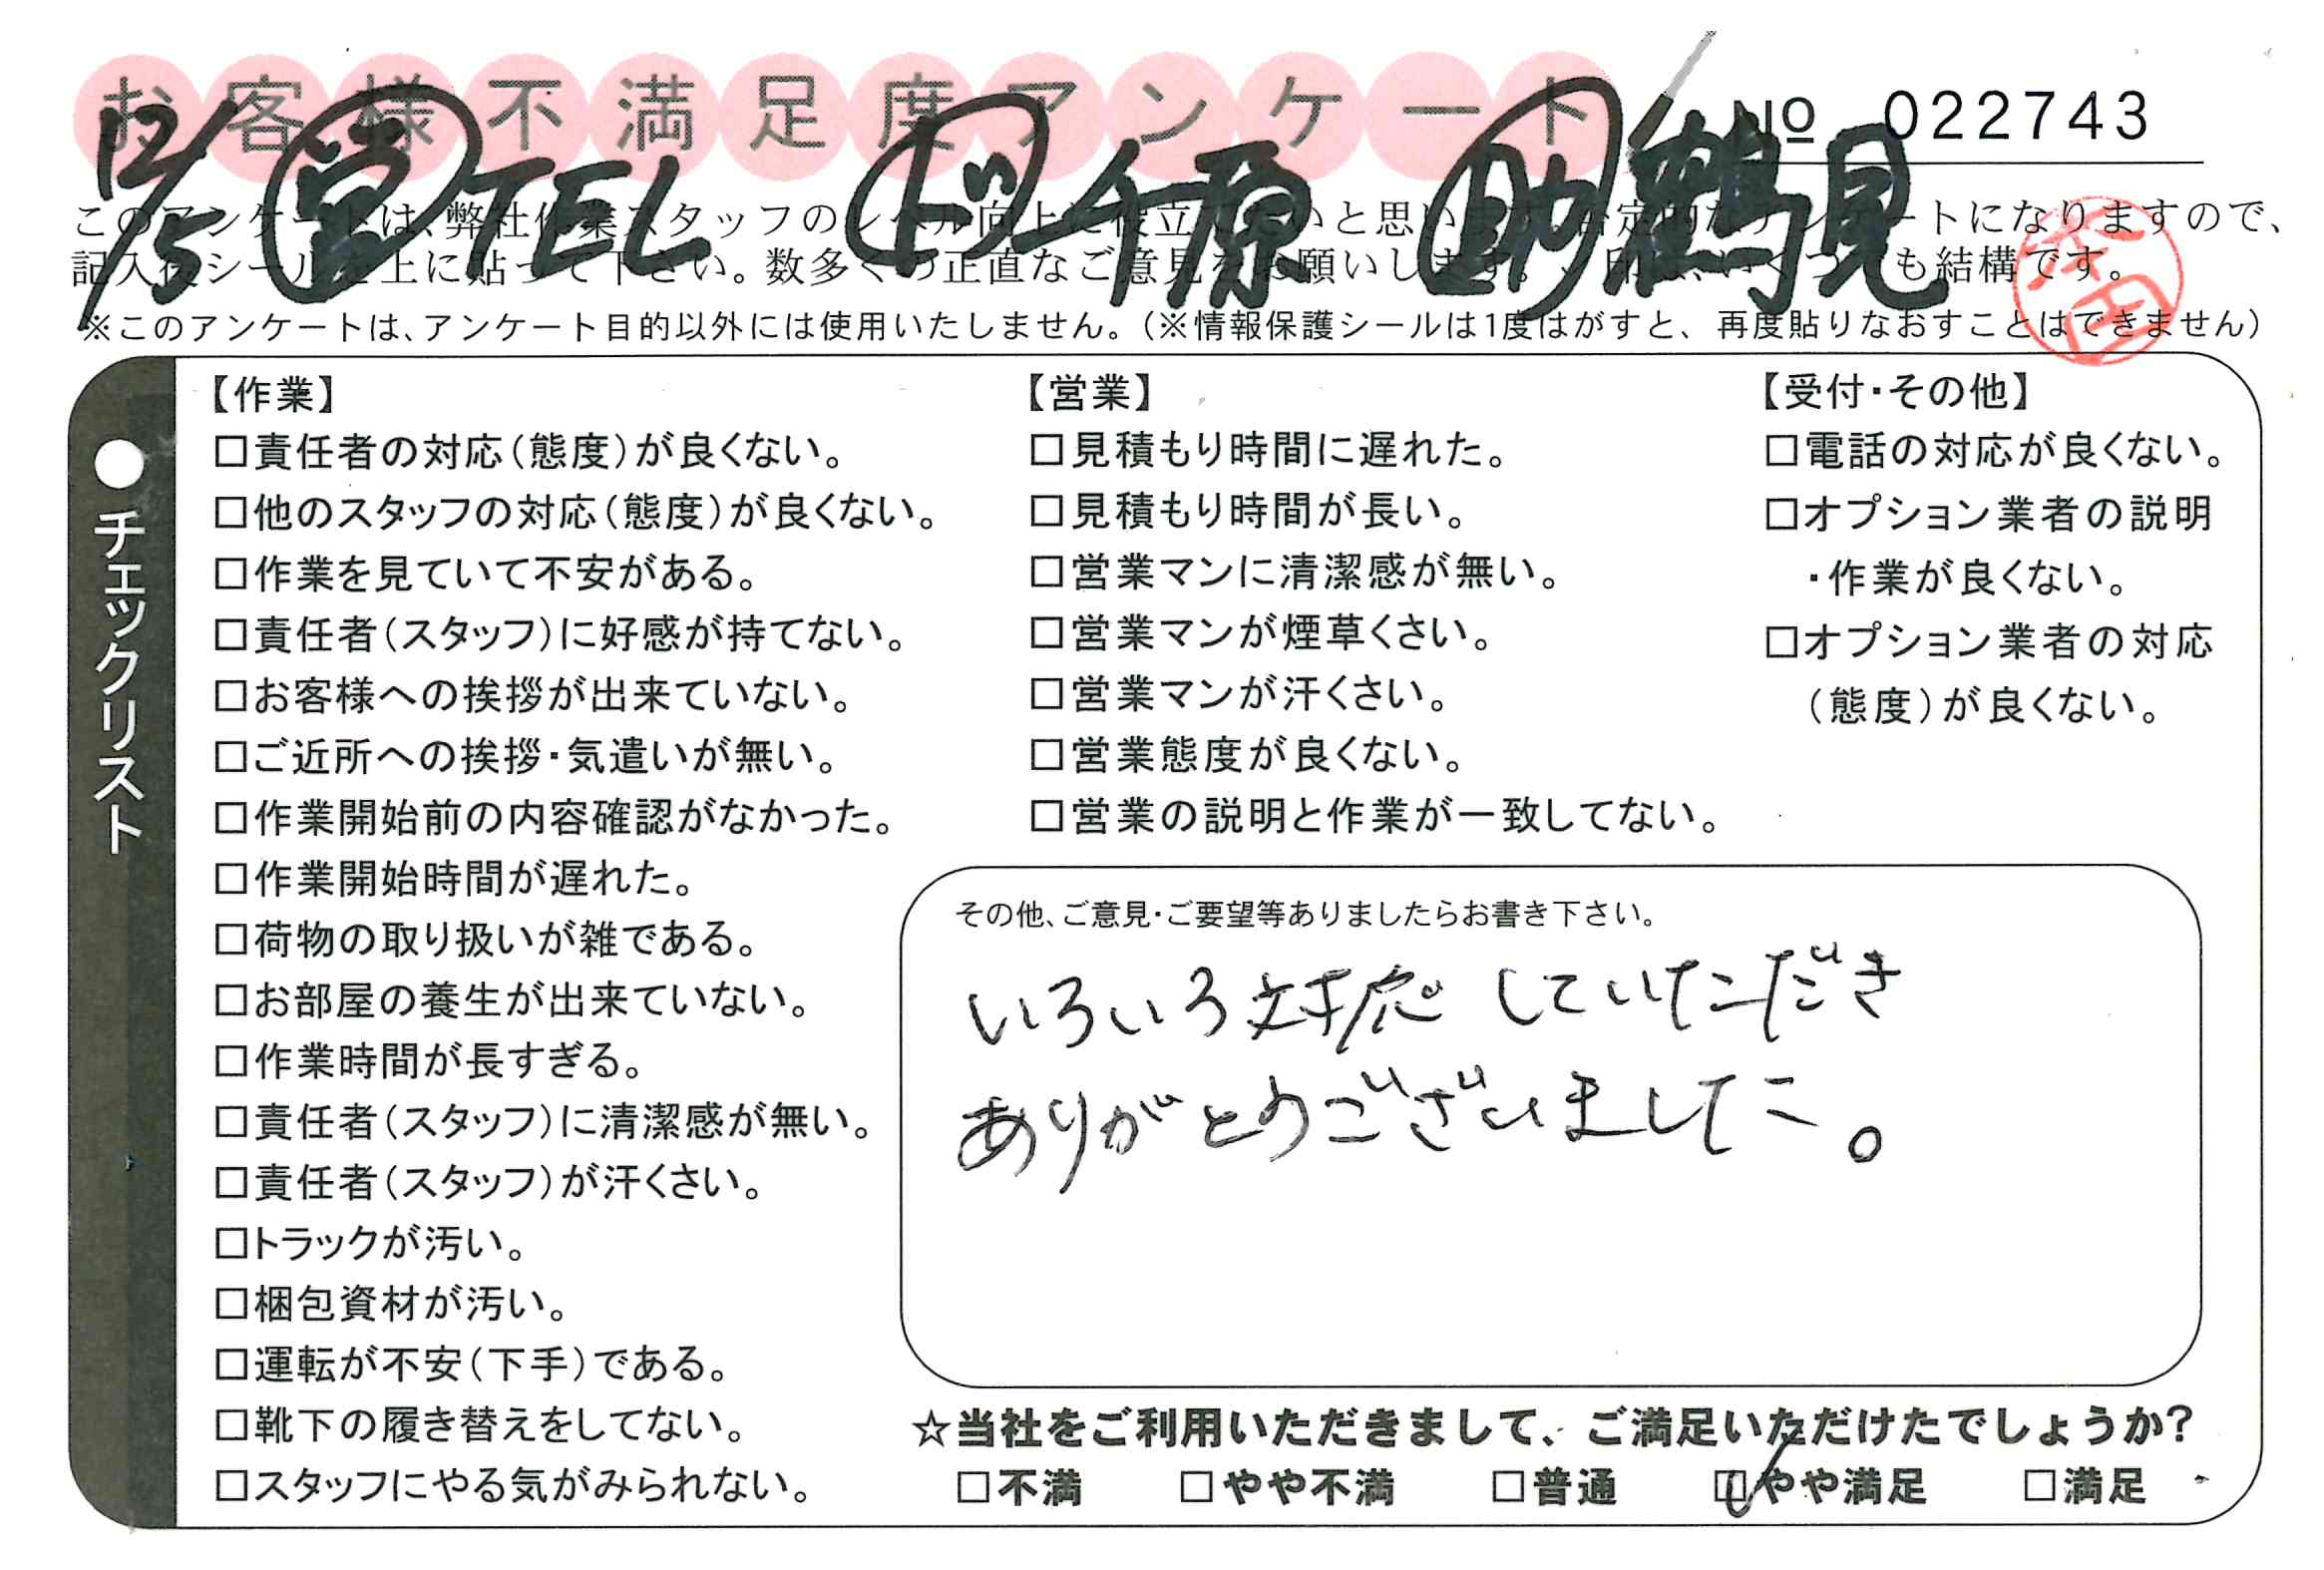 お客様不満足度アンケート
№ 022743
12/15 営 TEL ド 千原 助 鶴見
このアンケートは、弊社作業スタッフのレベル向上に役立てたいと思います。否定的なアンケートになりますので、
記入後シールを上に貼って下さい。数多くの正直なご意見をお願いします。
も結構です。
※このアンケートは、アンケート目的以外には使用いたしません。(※情報保護シールは1度はがすと、再度貼りなおすことはできません)
●チェックリスト
【作業】
□責任者の対応(態度)が良くない。
□他のスタッフの対応(態度)が良くない。
□作業を見ていて不安がある。
□責任者(スタッフ)に好感が持てない。
□お客様への挨拶が出来ていない。
□ご近所への挨拶・気遣いが無い。
□作業開始前の内容確認がなかった。
□作業開始時間が遅れた。
□荷物の取り扱いが雑である。
□お部屋の養生が出来ていない。
□作業時間が長すぎる。
□責任者(スタッフ)に清潔感が無い。
□責任者(スタッフ)が汗くさい。
□トラックが汚い。
□梱包資材が汚い。
□運転が不安(下手)である。
□靴下の履き替えをしてない。
□スタッフにやる気がみられない。
【営業】
□見積もり時間に遅れた。
□見積もり時間が長い。
□営業マンに清潔感が無い。
□営業マンが煙草くさい。
□営業マンが汗くさい。
□営業態度が良くない。
□営業の説明と作業が一致してない。
【受付・その他】
□電話の対応が良くない。
□オプション業者の説明
・作業が良くない。
□オプション業者の対応
(態度)が良くない。
その他、ご意見・ご要望等ありましたらお書き下さい。
いろいろ対応していただき
ありがとうございました。
☆当社をご利用いただきまして、ご満足いただけたでしょうか?
□不満 □やや不満 □普通 ☑やや満足 □満足